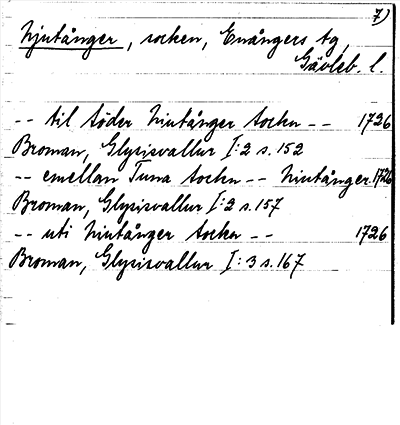 7)
Njutånger, socken, Enångers tg,
Gävleb. l.
-- til söder Niutånger sockn -- 1726
Broman, Glysisvallur I:2 s. 152
-- emellan Tuna sockn -- Niutånger. 1726
Broman, Glysisvallur I:2 s. 157
-- uti Niutånger sockn -- 1726
Broman, Glysisvallur I:3 s. 167